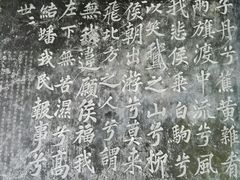 子丹兮蕉黄雜肴
兩旗渡中流兮風
我悲侯乘白駒兮
以笑鵝之山兮柳
侯朝出游兮莫来
飛北方之人兮謂
無我違願侯福我
左下無苦濕兮髙
結蟠我民報事兮
世〻